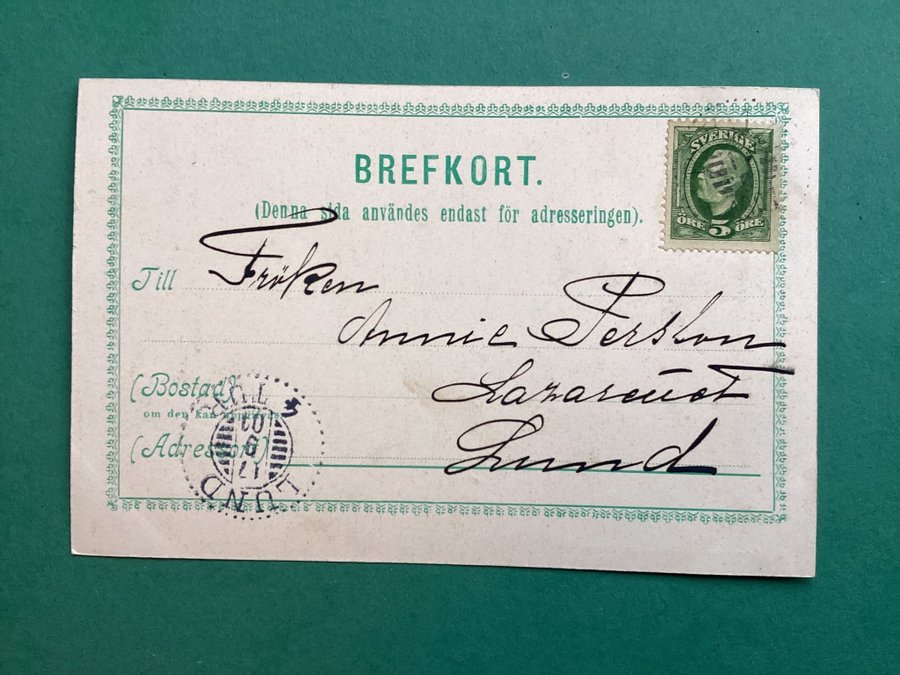 BREFKORT.
(Denna sida användes endast för adresseringen).
SVERIGE
ÖRE 5 ÖRE
Till Fröken
Annie Persson
(Bostad)
Lazarettet
om den kan uppgifvas
(Adressort)
Lund
LUND
17 9 01